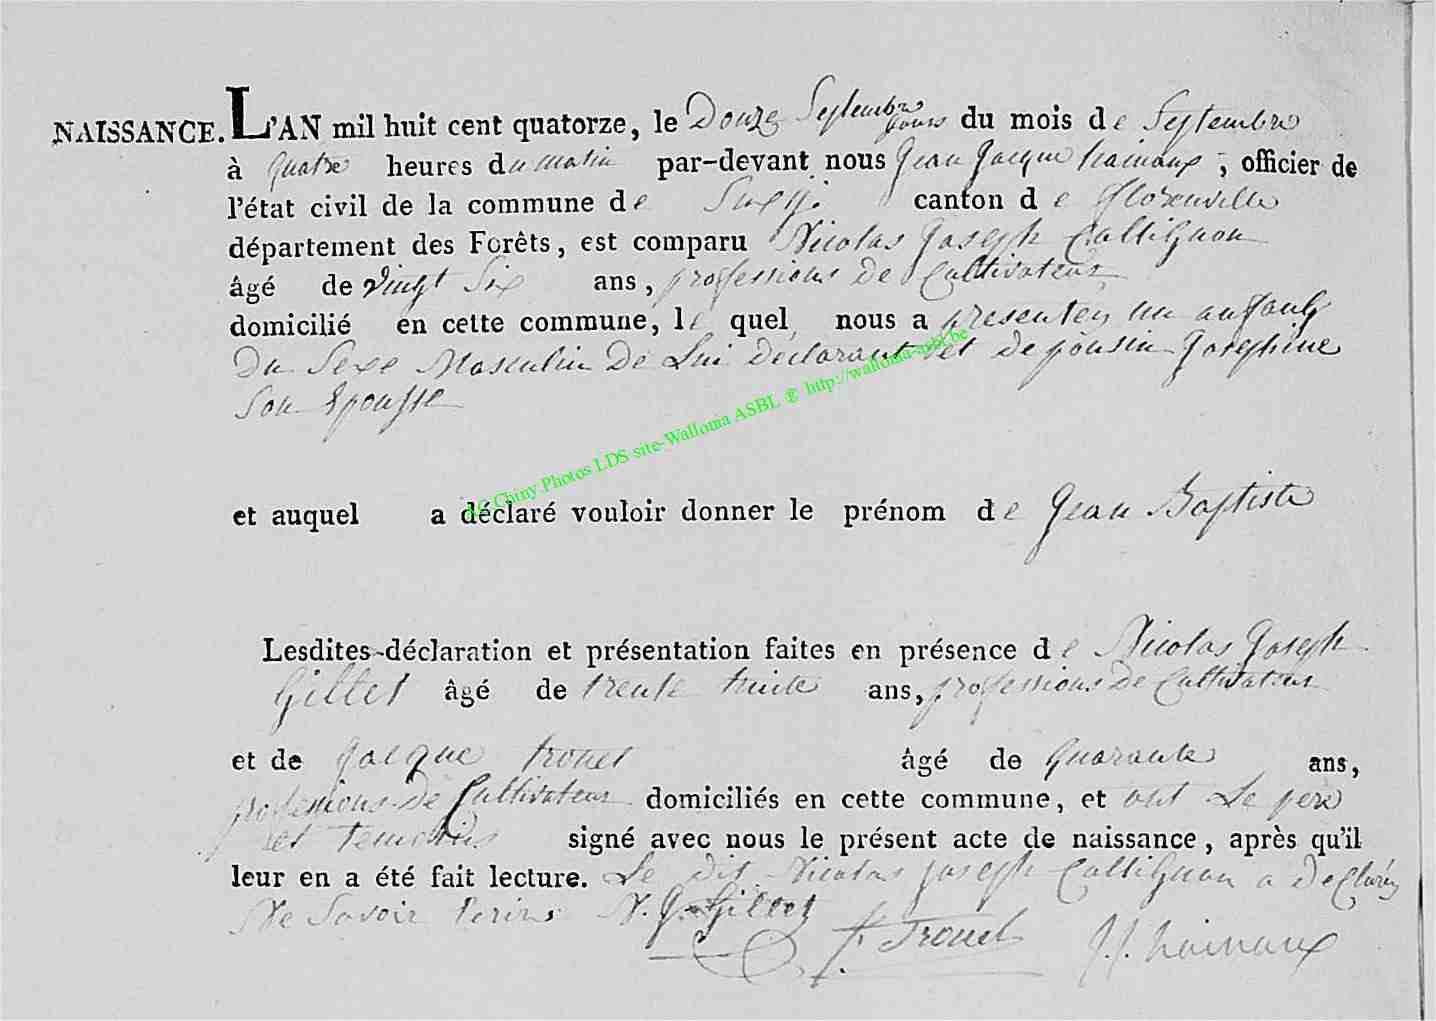 NAISSANCE. L'AN mil huit cent quatorze, le Douze Septembre jours du mois de Septembre
à quatre heures du matin par-devant nous Jean Jacque hainaux, officier de
l'état civil de la commune de Suxy canton de florenville
département des Forêts, est comparu Nicolas Joseph Callignon
âgé de vingt Six ans, professions de Cultivateur
domicilié en cette commune, le quel nous a presentez un anfant
Du Sexe Masculin De Lui déclarant et de pousin Josephine
Son Epousse
AC Chiny Photos LDS site-Wallonia ASBL ® http://wallonia-asbl.be
et auquel a déclaré vouloir donner le prénom de Jean Baptiste
Lesdites déclaration et présentation faites en présence de Nicolas Joseph
Gillet âgé de trente huite ans, professions De Cultivateur
et de Jacque trouet âgé de quarante ans,
professions De Cultivateur domiciliés en cette commune, et ont Le pere
et temoins signé avec nous le présent acte de naissance, après qu'il
leur en a été fait lecture. Le dit Nicolas Joseph Callignon a Declarez
Ne Savoir N. J. Gillet
Trouet J. J. hainaux